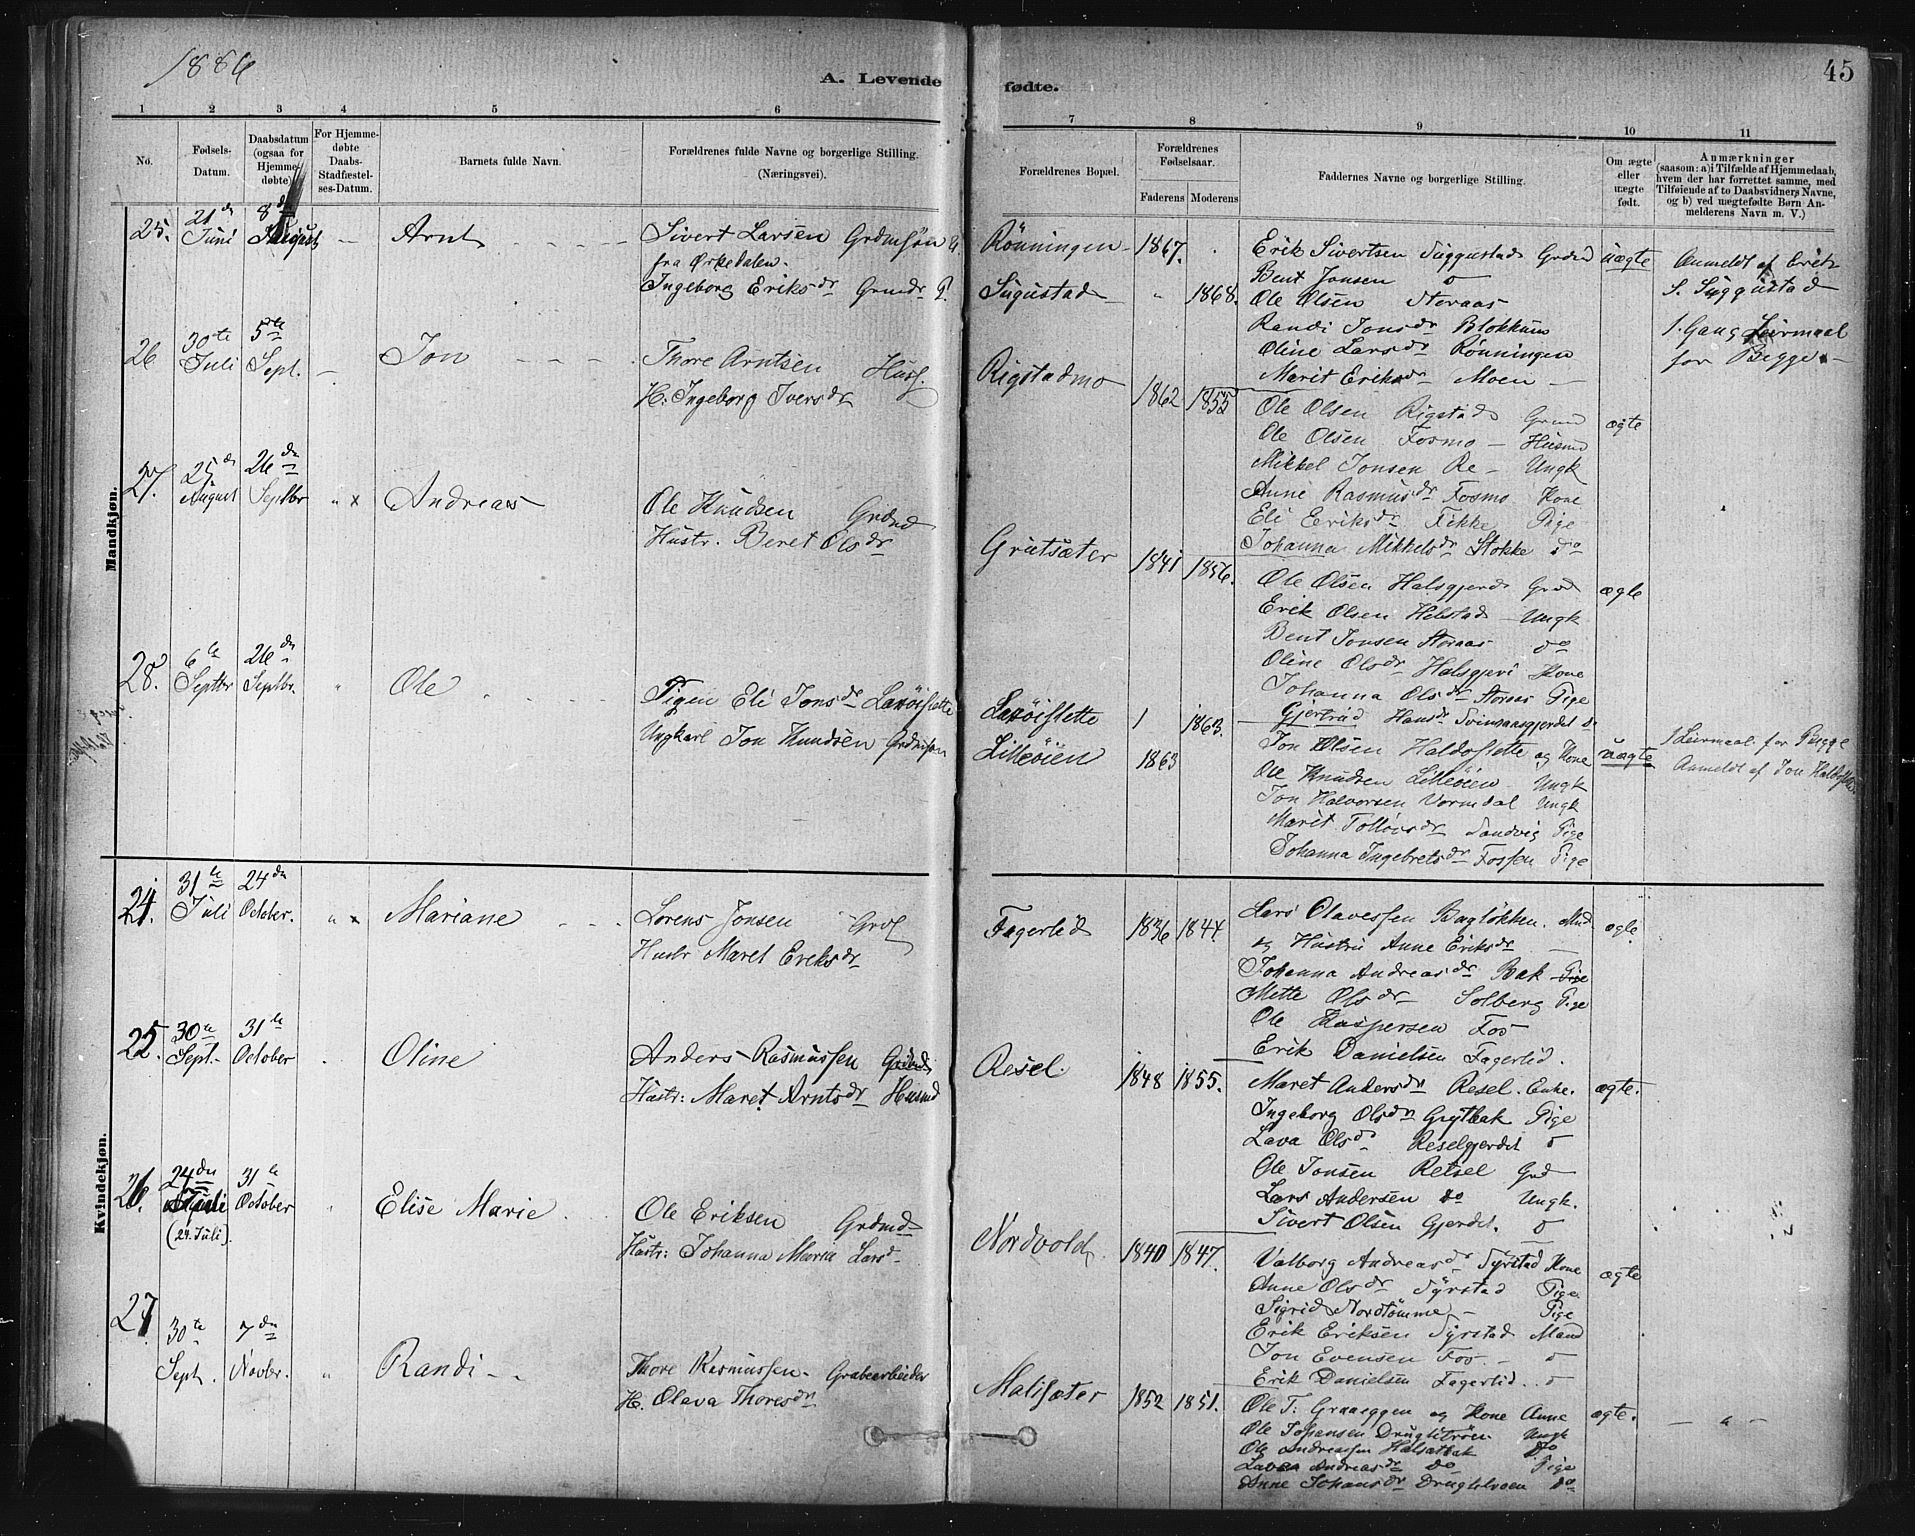 1886
A. Levende fødte.
45
1 2 3 4 5 6 7 8 9 10 11
No.
Fødsels-Datum.
Daabsdatum (ogsaa for Hjemme-døbte)
For Hjemme-døbte Daabs-Stadfæstel-ses-Datum.
Barnets fulde Navn.
Forældrenes fulde Navne og borgerlige Stilling.
(Næringsvei).
Forældrenes Bopæl.
Forældrenes Fødselsaar.
Faderens Moderens
Faddernes Navne og borgerlige Stilling.
Om ægte eller uægte født.
Anmærkninger
(saasom: a) i Tilfælde af Hjemmedaab,
hvem der har forrettet samme, med
Tilføiende af to Daabsvidners Navne,
og b) ved uægtefødte Børn An-
melderens Navn m. V.)
Mandkjøn.
25. 21de Juni 8de August — Arnt
Sivert Larsen Grdmsøn
fra Ørkedalen.
Ingeborg Eriksdr Grmdr P.
Rønningen 1867.
Sugustad " 1868.
Erik Sivertsen Suggustad Grdmd
Bent Jonsen
Ole Olsen Storaas
Randi Jonsdr Blokkum
Oline Larsdr Rønningen
Marit Eriksdr Moen
uægte
Anmeldt af Erik
S. Suggustad
1. Gang Leirmaal
for Begge. —
26 30te Juli 5te Sept. — Jon
Thore Arntsen Husf.
H: Ingeborg Iversdr
Rigstadmo 1862 1855
Ole Olsen Rigstad Grmd
Ole Olsen Fosmo — Husmd
Mikkel Jonsen Re — Ungk
Anne Rasmusdr Fosmo Kone
Eli Eeriksdr Fikke Pige
Johanna Mikkelsdr Stokke do
ægte
27. 25de August 26de Septbr " x Andreas
Ole Knudsen Grdmd
Hustr. Beret Olsdr
Grutsæter 1841 1856.
Ole Olsen Halsgjerd Grd
Erik Olsen Helstad Ungk
Bent Jonsen Storaas do
Oline Olsdr Halsgjerd Kone
Johanna Olsdr Storaas Pige
Gjertrud Hansdr Svinsaasgjerdet do
ægte
28. 6te Septbr 26de Septbr. " Ole
Pigen Eli Jonsdr Laxøislette
Ungkarl Jon Knudsen Grdmsøn
Laxøislette 1863.
Lilleøien 1863
Jon Olsen Haldoslette og Kone
Ole Knudsen Lilleøien Ungk
Jon Halvorsen Vormdal Ungk
Marit Tolløvsdr Sandvig Pige
Johanna Ingebretsdr Fossen Pige
uægte
1 Leirmaal for Begge
Anmeldt af Jon Haldoslette.
Kvindekjøn.
24. 31te Juli 24de October. " x Mariane
Lorens Jonsen
Hustr Maret Eriksdr
Fagerlid 1836 1844.
Lars Olavessen Bagløkken. Md
og Hustru Anne Eriksdr
Johanna Andreasdr Bak Pige
Mette Olsdr Solberg Pige
Ole Kaspersen Fos
Erik Danielsen Fagerlid.
ægte
25. 30te Sept. 31te October Oline
Anders Rasmussen
Hustr: Maret Arntsdr Husmd
Resel. 1848 1855.
Maret Andersdr Resel. Enke.
Ingeborg Olsdr Grytbak Pige
Lava Olsdr Reselgjerdet
Ole Jonsen Retsel Grd
Lars Andersen do Ungk.
Sivert Olsen Gjerdet.
ægte.
26. 24de Juli (24. Juli). 31te October " Elise Marie
Ole Eriksen Grdmd
Hustr: Johanna Maria Larsd
Nordvold 1840 1847.
Valborg Andreasdr Syrstad Kone
Anne Olsdr Syrstad Pige
Sigrid Nordtømme — Pige
Erik Eriksen Syrstad Mand
Jon Evensen Fos —
Erik Danielsen Fagerlid.
ægte
27 30te Sept. 7de Novbr. " Randi
Thore Rasmussen. Grubearbeider
H. Olava Thoresdr
Malisæter 1852 1851.
Ole T: Graaeggen og Kone Anne
Ole Johansen Druglitrøen Ungk
Ole Andreassen Halsætbak do
Lava Andreasdr do Pige
Anne Johansdr Druglitrøen do
ægte.
— " —